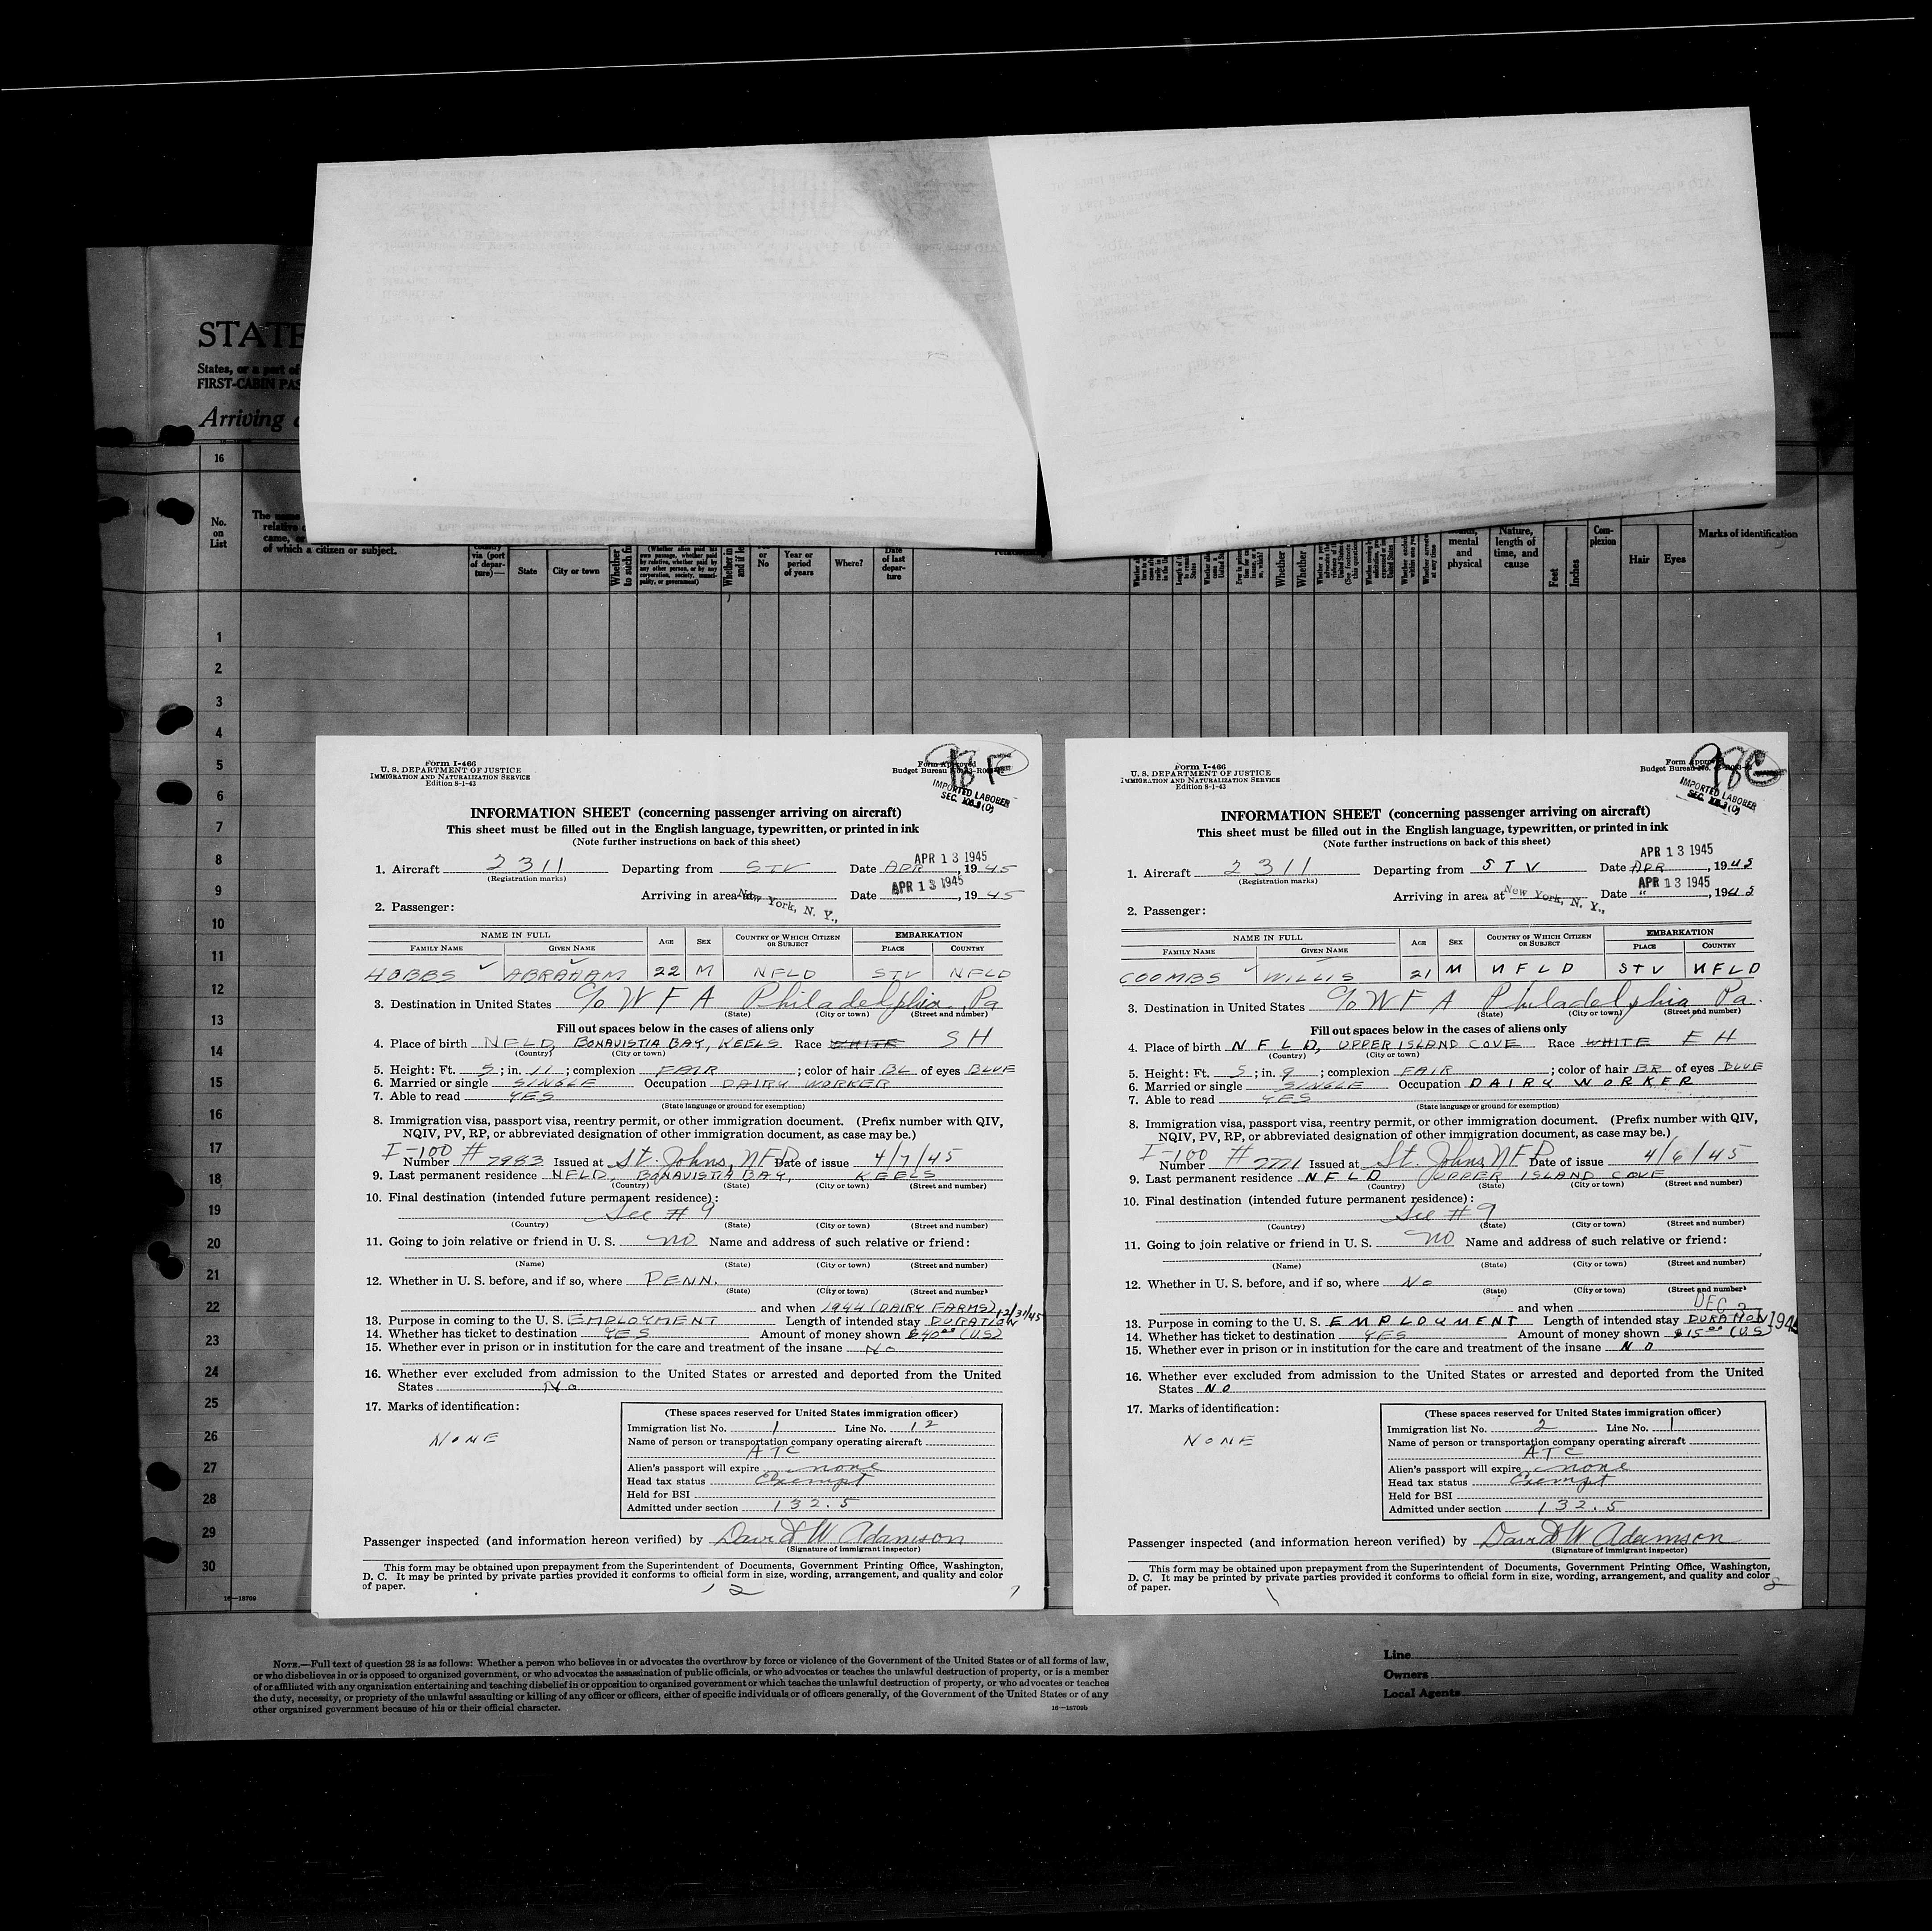 STATE
States, or a part of
FIRST-CABIN PAS
Arriving
16
No. on List
of which a citizen or subject.
via (port of depar- ture)—
State
City or town
No
Year or period of years
Where?
Date of last depar- ture
mental and physical
Nature, length of time, and cause
Feet
Inches
Com- plexion
Hair
Eyes
Marks of identification
1
2
3
4
5
6
7
8
9
10
11
12
13
14
15
16
17
18
19
20
21
22
23
24
25
26
27
28
29
30
16—18709
Form I-466
U. S. DEPARTMENT OF JUSTICE
IMMIGRATION AND NATURALIZATION SERVICE
Edition 8-1-43
Form Approved
Budget Bureau
IMPORTED LABORER
INFORMATION SHEET (concerning passenger arriving on aircraft)
This sheet must be filled out in the English language, typewritten, or printed in ink
(Note further instructions on back of this sheet)
APR 13 1945
1. Aircraft 2311 Departing from STV Date APR, 1945
(Registration marks)
APR 13 1945
Arriving in area at New York, N. Y., Date , 1945
2. Passenger:
NAME IN FULL AGE SEX COUNTRY OF WHICH CITIZEN OR SUBJECT EMBARKATION
FAMILY NAME GIVEN NAME PLACE COUNTRY
HOBBS ABRAHAM 22 M NFLD STV NFLD
3. Destination in United States c/o WFA Philadelphia Pa
(State) (City or town) (Street and number)
Fill out spaces below in the cases of aliens only
4. Place of birth NFLD, BONAVISTIA BAY, KEELS Race WHITE SH
(Country) (City or town)
5. Height: Ft. 5; in. 11; complexion FAIR; color of hair BL of eyes BLUE
6. Married or single SINGLE Occupation DAIRY WORKER
7. Able to read YES
(State language or ground for exemption)
8. Immigration visa, passport visa, reentry permit, or other immigration document. (Prefix number with QIV,
NQIV, PV, RP, or abbreviated designation of other immigration document, as case may be.)
I-100
Number # 7983 Issued at St. Johns, NFD Date of issue 4/7/45
9. Last permanent residence NFLD, BONAVISTIA BAY, KEELS
(Country) (State) (City or town) (Street and number)
10. Final destination (intended future permanent residence):
See #9
(Country) (State) (City or town) (Street and number)
11. Going to join relative or friend in U. S. no Name and address of such relative or friend:
(Name) (State) (City or town) (Street and number)
12. Whether in U. S. before, and if so, where PENN.
(State) (City or town) (Street and number)
and when 1944 (DAIRY FARMS) 12/31/45
13. Purpose in coming to the U. S. EMPLOYMENT Length of intended stay DURATION
14. Whether has ticket to destination YES Amount of money shown $40.00 (US)
15. Whether ever in prison or in institution for the care and treatment of the insane No
16. Whether ever excluded from admission to the United States or arrested and deported from the United
States No
17. Marks of identification:
NONE
(These spaces reserved for United States immigration officer)
Immigration list No. 1 Line No. 12
Name of person or transportation company operating aircraft
ATC
Alien's passport will expire none
Head tax status Exempt
Held for BSI
Admitted under section 132.5
Passenger inspected (and information hereon verified) by David W Adamson
(Signature of immigrant inspector)
This form may be obtained upon prepayment from the Superintendent of Documents, Government Printing Office, Washington,
D. C. It may be printed by private parties provided it conforms to official form in size, wording, arrangement, and quality and color
of paper.
12
1
Form I-466
U. S. DEPARTMENT OF JUSTICE
IMMIGRATION AND NATURALIZATION SERVICE
Edition 8-1-43
Form Approved
Budget Bureau No.
IMPORTED LABORER
INFORMATION SHEET (concerning passenger arriving on aircraft)
This sheet must be filled out in the English language, typewritten, or printed in ink
(Note further instructions on back of this sheet)
APR 13 1945
1. Aircraft 2311 Departing from STV Date APR, 1945
(Registration marks)
APR 13 1945
Arriving in area at New York, N. Y., Date ", 1945
2. Passenger:
NAME IN FULL AGE SEX COUNTRY OF WHICH CITIZEN OR SUBJECT EMBARKATION
FAMILY NAME GIVEN NAME PLACE COUNTRY
COOMBS WILLIS 21 M NFLD STV NFLD
3. Destination in United States c/o WFA Philadelphia Pa.
(State) (City or town) (Street and number)
Fill out spaces below in the cases of aliens only
4. Place of birth NFLD, UPPER ISLAND COVE Race WHITE EH
(Country) (City or town)
5. Height: Ft. 5; in. 9; complexion FAIR; color of hair BR of eyes BLUE
6. Married or single SINGLE Occupation DAIRY WORKER
7. Able to read YES
(State language or ground for exemption)
8. Immigration visa, passport visa, reentry permit, or other immigration document. (Prefix number with QIV,
NQIV, PV, RP, or abbreviated designation of other immigration document, as case may be.)
I-100
Number # 7771 Issued at St. Johns NFD Date of issue 4/6/45
9. Last permanent residence NFLD UPPER ISLAND COVE
(Country) (State) (City or town) (Street and number)
10. Final destination (intended future permanent residence):
See #9
(Country) (State) (City or town) (Street and number)
11. Going to join relative or friend in U. S. no Name and address of such relative or friend:
(Name) (State) (City or town) (Street and number)
12. Whether in U. S. before, and if so, where No
(State) (City or town) (Street and number)
and when DEC
13. Purpose in coming to the U. S. EMPLOYMENT Length of intended stay DURATION
14. Whether has ticket to destination YES Amount of money shown $15.00 (US)
15. Whether ever in prison or in institution for the care and treatment of the insane NO
16. Whether ever excluded from admission to the United States or arrested and deported from the United
States NO
17. Marks of identification:
NONE
(These spaces reserved for United States immigration officer)
Immigration list No. 2 Line No. 1
Name of person or transportation company operating aircraft
ATC
Alien's passport will expire none
Head tax status Exempt
Held for BSI
Admitted under section 132.5
Passenger inspected (and information hereon verified) by David W Adamson
(Signature of immigrant inspector)
This form may be obtained upon prepayment from the Superintendent of Documents, Government Printing Office, Washington,
D. C. It may be printed by private parties provided it conforms to official form in size, wording, arrangement, and quality and color
of paper.
1
2
NOTE.—Full text of question 28 is as follows: Whether a person who believes in or advocates the overthrow by force or violence of the Government of the United States or of all forms of law,
or who disbelieves in or is opposed to organized government, or who advocates the assassination of public officials, or who advocates or teaches the unlawful destruction of property, or is a member
of or affiliated with any organization entertaining and teaching disbelief in or opposition to organized government or which teaches the unlawful destruction of property, or who advocates or teaches
the duty, necessity, or propriety of the unlawful assaulting or killing of any officer or officers, either of specific individuals or of officers generally, of the Government of the United States or of any
other organized government because of his or their official character.
16—18709b
Line
Owners
Local Agents